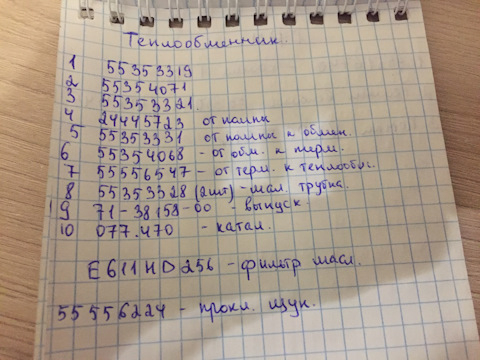 Теплообменник.
1 55353319
2 55354071
3 55353321.
4 24445723 от помпы
5 55353331 от помпы к обмен.
6 55354068 - от обм. к терм.
7 55556547 - от терм. к теплообм.
8 55353328 (2шт) - мал. трубка.
9 71-38158-00 - выпуск.
10 077.470 - катал.
E611HD256 - фильтр масл.
55556224 - прокл. щуп.